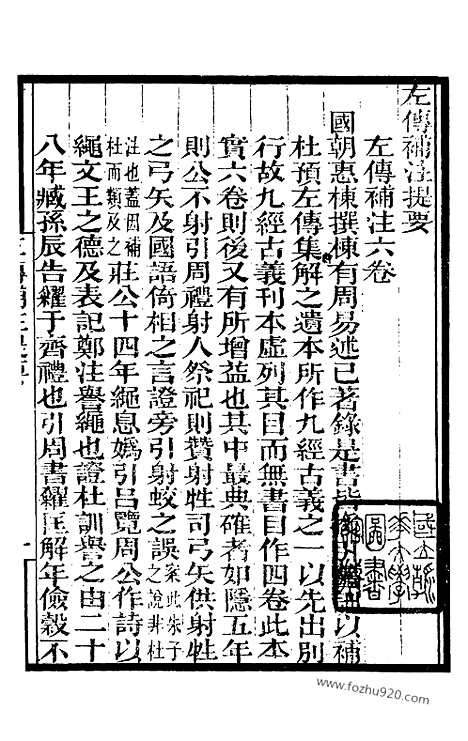 左傳補注提要
左傳補注六卷
國朝惠棟撰棟有周易述已著錄是書皆以補
杜預左傳集解之遺本所作九經古義之一以先出別
行故九經古義刊本虛列其目而無書目作四卷此本
實六卷則後又有所增益也其中最典確者如隱五年
則公不射引周禮射人祭祀則贊射牲司弓矢供射牲
之弓矢及國語倚相之言證旁引射蛟之誤案此朱子之說非杜
注也蓋因補杜而類及之莊公十四年繩息嬀引呂覽周公作詩以
繩文王之德及表記鄭注譽繩也證杜訓譽之由二十
八年臧孫辰告糴于齊禮也引周書糴匡解年儉穀不
www.fozhu920.com